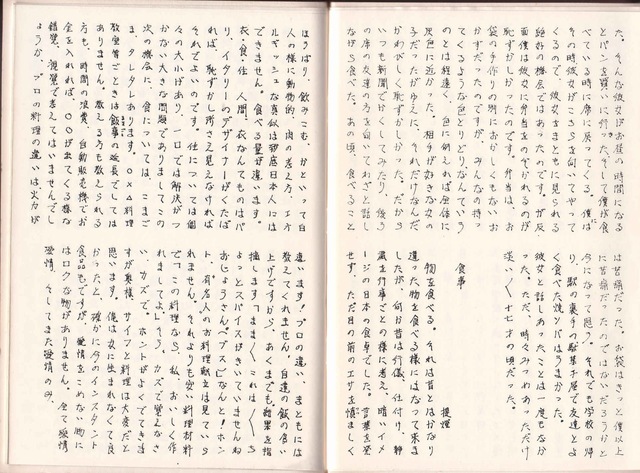 た。そんな彼女がお昼の時間になる
とパンを買いに行った。そして僕が食
べている時に席に戻ってくる。僕は
その時彼女がこっちを向いてやって
くるので、彼女をまともに見られる
絶好の機会ではあったのです。が反
面僕は彼女に弁当をのぞかれるのが
恥ずかしかったのです。弁当は、お
袋の手作りの別におかしくもないお
かずだったのですが、みんなの持っ
てくるような色とりどりなんていう
のとは程遠く、色に例えれば全体に
黒色に近かった。相手が好きな女の
子だったがゆえに、それだけなんだ
かわびしく恥ずかしかった。だから
いつも新聞でかくしてみたり、後ろ
の席の友達の方を向いてわざと話し
ながら食べた。その頃、食べること
は苦痛だった。お袋はきっと僕以上
に苦痛だったのではないだろうかと
今になって思う。それでも学校の帰
り、駅の裏手の駄菓子屋で友達とよ
く食べた焼ソバはうまかった。
彼女と話しあったことは一度もなか
った。ただ、時々みつめあっただけ
淡い十七才の頃だった。
食事
提燈
物を食べる。それは昔とはかなり
違った物を食べる様にはなって来ま
したが、何か昔は行儀、仕付け、静
粛を行事ごとの様に考え、暗いイメ
ージの日本の食卓でした。言葉を発
せず、ただ目の前のエサを慎ましく
ほうばり、飲みこむ、かといって白
人の様に動物的、肉の考え方、エネ
ルギッシュな真似は到底日本人には
できません。食べる量が違います。
衣・食・住 人間、衣なんてものは
り、イタリーのデザイナーがくたば
れば、恥ずかし所さえ見えなければ
それでよいのです。住については個
々の大小があり、一口では解決がつ
かない大きな問題でありましてこの
次の機会に、食については、こまご
ま、タレタレあります。〇×△料理
教室皆ごときは飯事の延長でしては
ありません。教える方も教えられる
方も、時間の浪費、自動販売機でお
金を入れれば、〇〇が出てくる様な
錯覚、視覚で考えてはいませんでし
ょうか、プロの料理の違いは火力が
違います！プロの違い、まともには
教えてくれません。自達の飯の食い
上げですから、あくまでも結果を指
摘します「まま〳〵これは
よっとスパイスがきいていませんね
おじょうさんペプスピなんと！ホン
ト、有名人のお料理献立は見ていら
れません。それよりも安い料理材料
で「この料理なら、私、おいしく作
れましてよ」そう、カズで覚えなさ
い、カズで。ホントがよくでてきま
すが奥様、サイフと料理は大変だと
思います。俺は女に生まれなくて良
かったと、確かに今のインスタント
食品もですが、愛情をこめない物に
はロクな物がありません。全て愛情
愛情、そしてまた愛情のみ。